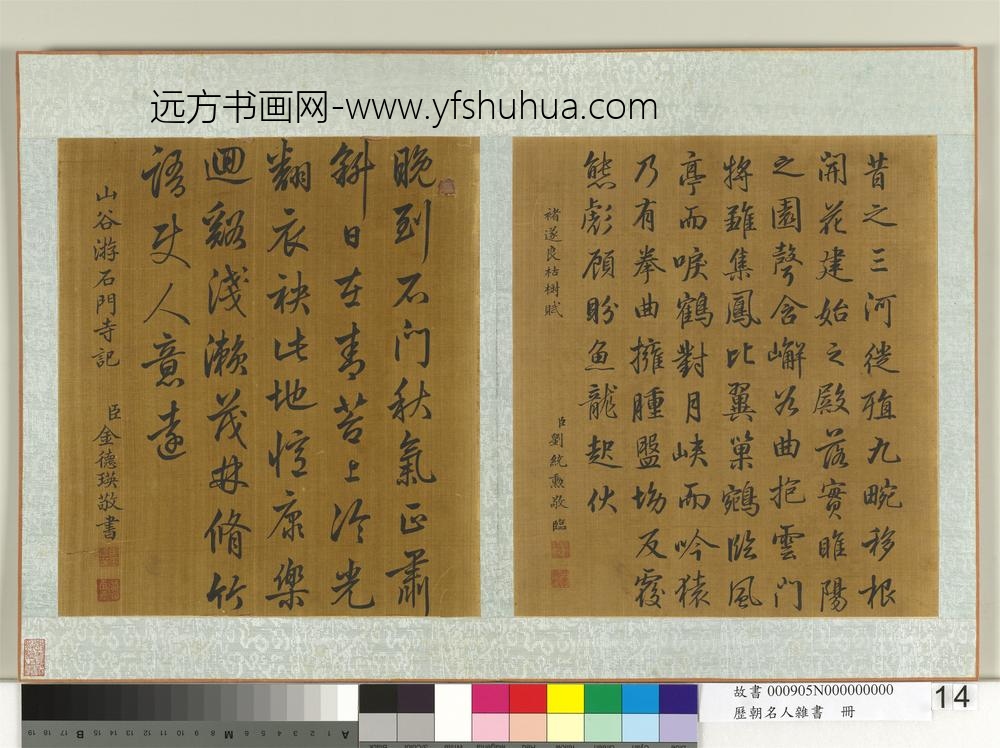 远方书画网-www.yfshuhua.com
昔之三河徙殖九畹移根
開花建始之殿落實睢陽
之園聲含嶰谷曲抱雲門
將雛集鳳比翼巢鵷臨風
亭而唳鶴對月峽而吟猿
乃有拳曲擁腫盤坳反覆
熊彪顧盼魚龍起伏
褚遂良枯樹賦
臣劉統勳敬臨
晚到石門秋氣正肅
斜日在青苔上冷光
翻衣袂此地憶康樂
迴谿淺瀨茂林脩竹
語使人意遠
山谷游石門寺記
臣金德瑛敬書
故書 000905N000000000
歷朝名人雜書 冊
14